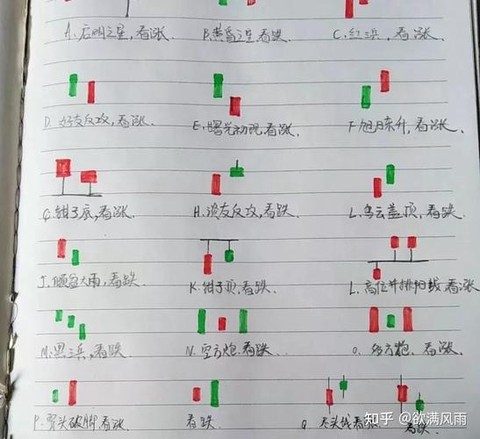 A. 启明之星,看涨.
B. 黄昏之星,看跌.
C. 红三兵,看涨.
D. 好友反攻,看涨.
E. 曙光初现,看涨.
F. 旭日东升,看涨.
G. 钳子底,看涨.
H. 淡友反攻,看跌.
L. 乌云盖顶,看跌.
J. 倾盆大雨,看跌.
K. 钳子顶,看跌.
L. 高位并排阳线,看涨
M. 黑三兵,看跌
N. 空方炮,看跌.
O. 多方炮,看涨.
P. 穿头破脚,看涨.
看跌.
Q. 尽头线看跌
看涨.
知乎 @欲满风雨